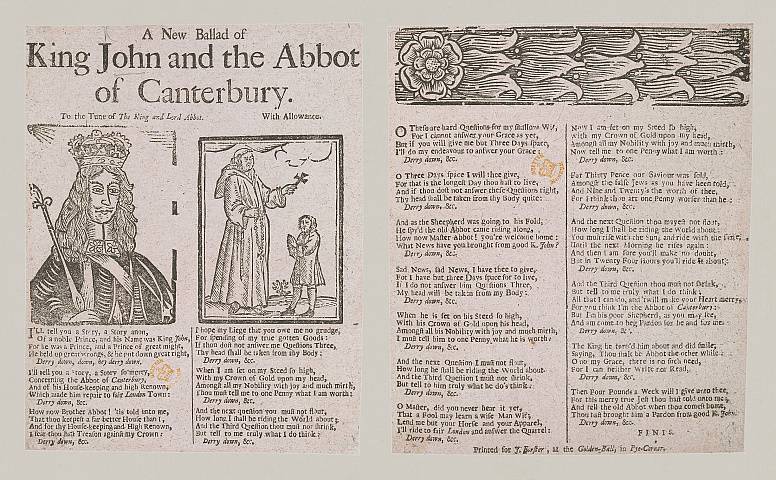 A New Ballad of
King John and the Abbot
of Canterbury.
To the Tune of The King and Lord Abbot. With Allowance.
I'LL tell you a Story, a Story anon,
Of a noble Prince, and his Name was King John,
For he was a Prince, and a Prince of great might,
He held up great wrongs, & he put down great right,
Derry down, down, hey derry down.
I'll tell you a Story, a Story so merry,
Concerning the Abbot of Canterbury,
And of his House-keeping and high Renown,
Which made him repair to fair London Town:
Derry down, &c.
How now Brother Abbot! 'tis told unto me,
That thou keepest a far better House than I,
And for thy House-keeping and High Renown,
I fear thou hast Treason against my Crown:
Derry down, &c.
I hope my Liege that you owe me no grudge,
For spending of my true gotten Goods:
If thou dost not answer me Questions Three,
Thy head shall be taken from thy Body:
Derry down, &c.
When I am set on my Steed so high,
With my Crown of Gold upon my head,
Amongst all my Nobility with joy and much mirth,
Thou must tell me to one Penny what I am worth:
Derry down, &c.
And the next question you must not flout,
How long I shall be riding the World about;
And the Third Question thou must not shrink,
But tell to me truly what I do think:
Derry down, &c.
O These are hard Questions for my shallow Wit,
For I cannot answer your Grace as yet,
But if you will give me but Three Days space,
I'll do my endeavour to answer your Grace;
Derry down, &c.
O Three Days space I will thee give,
For that is the longest Day thou hast to live,
And if thou dost not answer these Questions right,
Thy head shall be taken from thy Body quite:
Derry down, &c.
And as the Sheepherd was going to his Fold,
He spy'd the old Abbot came riding along,
How now Master Abbot! you're welcome home:
What News have you brought from good K. John?
Derry down, &c.
Sad News, sad News, I have thee to give,
For I have but three Days space for to live,
If I do not answer him Questions Three,
My head will be taken from my Body:
Derry down, &c.
When he is set on his Steed so high,
With his Crown of Gold upon his head,
Amongst all his Nobility with joy and much mirth,
I must tell him to one Penny what he is worth:
Derry down, &c.
And the next Question I must not flout,
How long he shall be riding the World about:
And the Third Question I must not shrink,
But tell to him truly what he do's think:
Derry down, &c.
O Master, did you never hear it yet,
That a Fool may learn a wise Man Wit,
Lend me but your Horse and your Apparel,
I'll ride to fair London and answer the Quarrel:
Derry down, &c.
Now I am set on my Steed so high,
With my Crown of Gold upon my head,
Amongst all my Nobility with joy and much mirth,
Now tell me to one Penny what I am worth:
Derry down, &c.
For Thirty Pence our Saviour was sold,
Amongst the false Jews as you have been told,
And Nine and Twenty's the worth of thee,
For I think thou art one Penny worser than he:
Derry down, &c.
And the next Question thou mayest not flout,
How long I shall be riding the World about:
You must rise with the Sun, and ride with the same,
Until the next Morning he rises again:
And then I am sure you'll make no doubt,
But in Twenty Four Hours you'll ride it about:
Derry down, &c.
And the Third Question thou must not shrink,
But tell to me truly what I do think:
All that I can do, and 'twill make your Heart merry,
For you think I'm the Abbot of Canterbury:
But I'm his poor Shepherd, as you may see,
And am come to beg Pardon for he and for me:
Derry down, &c.
The King he turn'd him about and did smile,
Saying, Thou shalt be Abbot the other while:
O no my Grace, there is no such need,
For I can neither Write nor Read,
Derry down, &c.
Then Four Pounds a Week will I give unto thee,
For this merry true Jest thou hast told unto me,
And tell the old Abbot when thou comest home,
Thou hast brought him a Pardon from good K. John:
Derry down, &c.
FINIS.
Printed for P. Brooksby, at the Golden-Ball, in Pye-Corner.